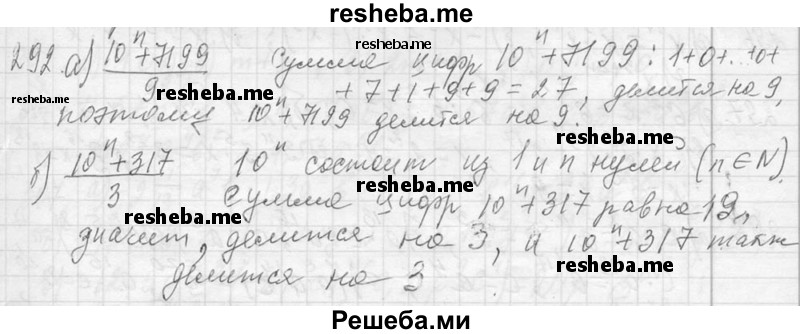 resheba.me
292 а) 10ⁿ+7199 Сумма цифр 10ⁿ+7199: 1+0+...+0+
9 +7+1+9+9=27, делится на 9,
поэтому 10ⁿ+7199 делится на 9.
б) 10ⁿ+317 10ⁿ состоит из 1 и n нулей (n∈N).
3 Сумма цифр 10ⁿ+317 равна 12,
значит, делится на 3, и 10ⁿ+317 также
делится на 3
www.resheba.me
www.resheba.me
www.resheba.me
www.resheba.me
www.resheba.me
www.resheba.me
Решеба.ми